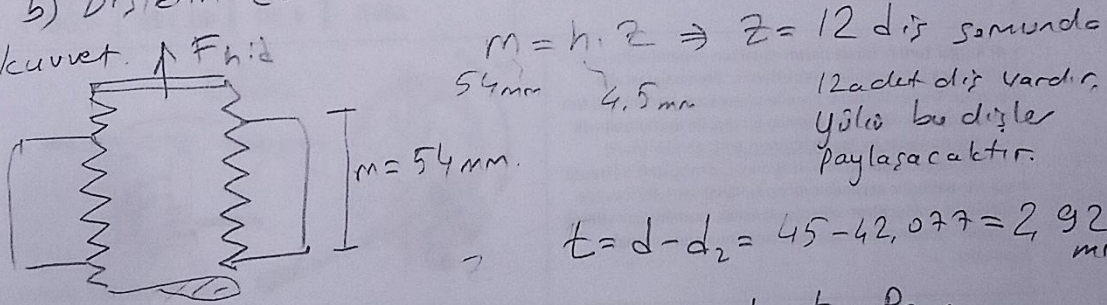 b)
kuvvet. Fhid
m = h . z ⇒ z = 12 diş somunda
54mm 4,5mm
12 adet diş vardır,
yükü bu dişler
paylaşacaktır.
m = 54 mm.
t = d - d₂ = 45 - 42,077 = 2,92